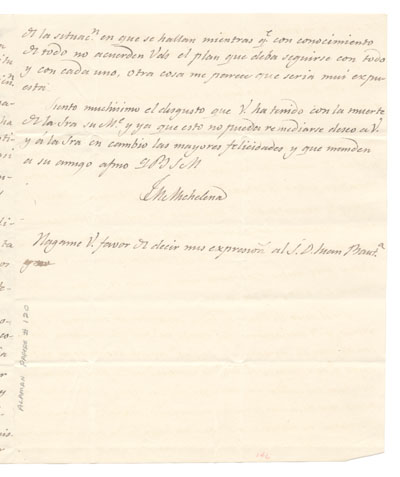 de la situac.n en que se hallan mientras q.e con conocimiento
de todo no acuerden Vds el plan que deba seguirse con todo
y con cada uno, otra cosa me parece que seria mui expu
esta.
Siento muchisimo el disgusto que V. ha tenido con la muerte
de la Sra su M.e y ya que esto no puedo remediarse deseo a V.
y á la Sra en cambio las mayores felicidades y que manden
a su amigo afmo Q B S M
Michelena
Hagame V. favor de decir mis expresion.s al S. D. Juan Baut.a
ALAMAN PAPERS # 120